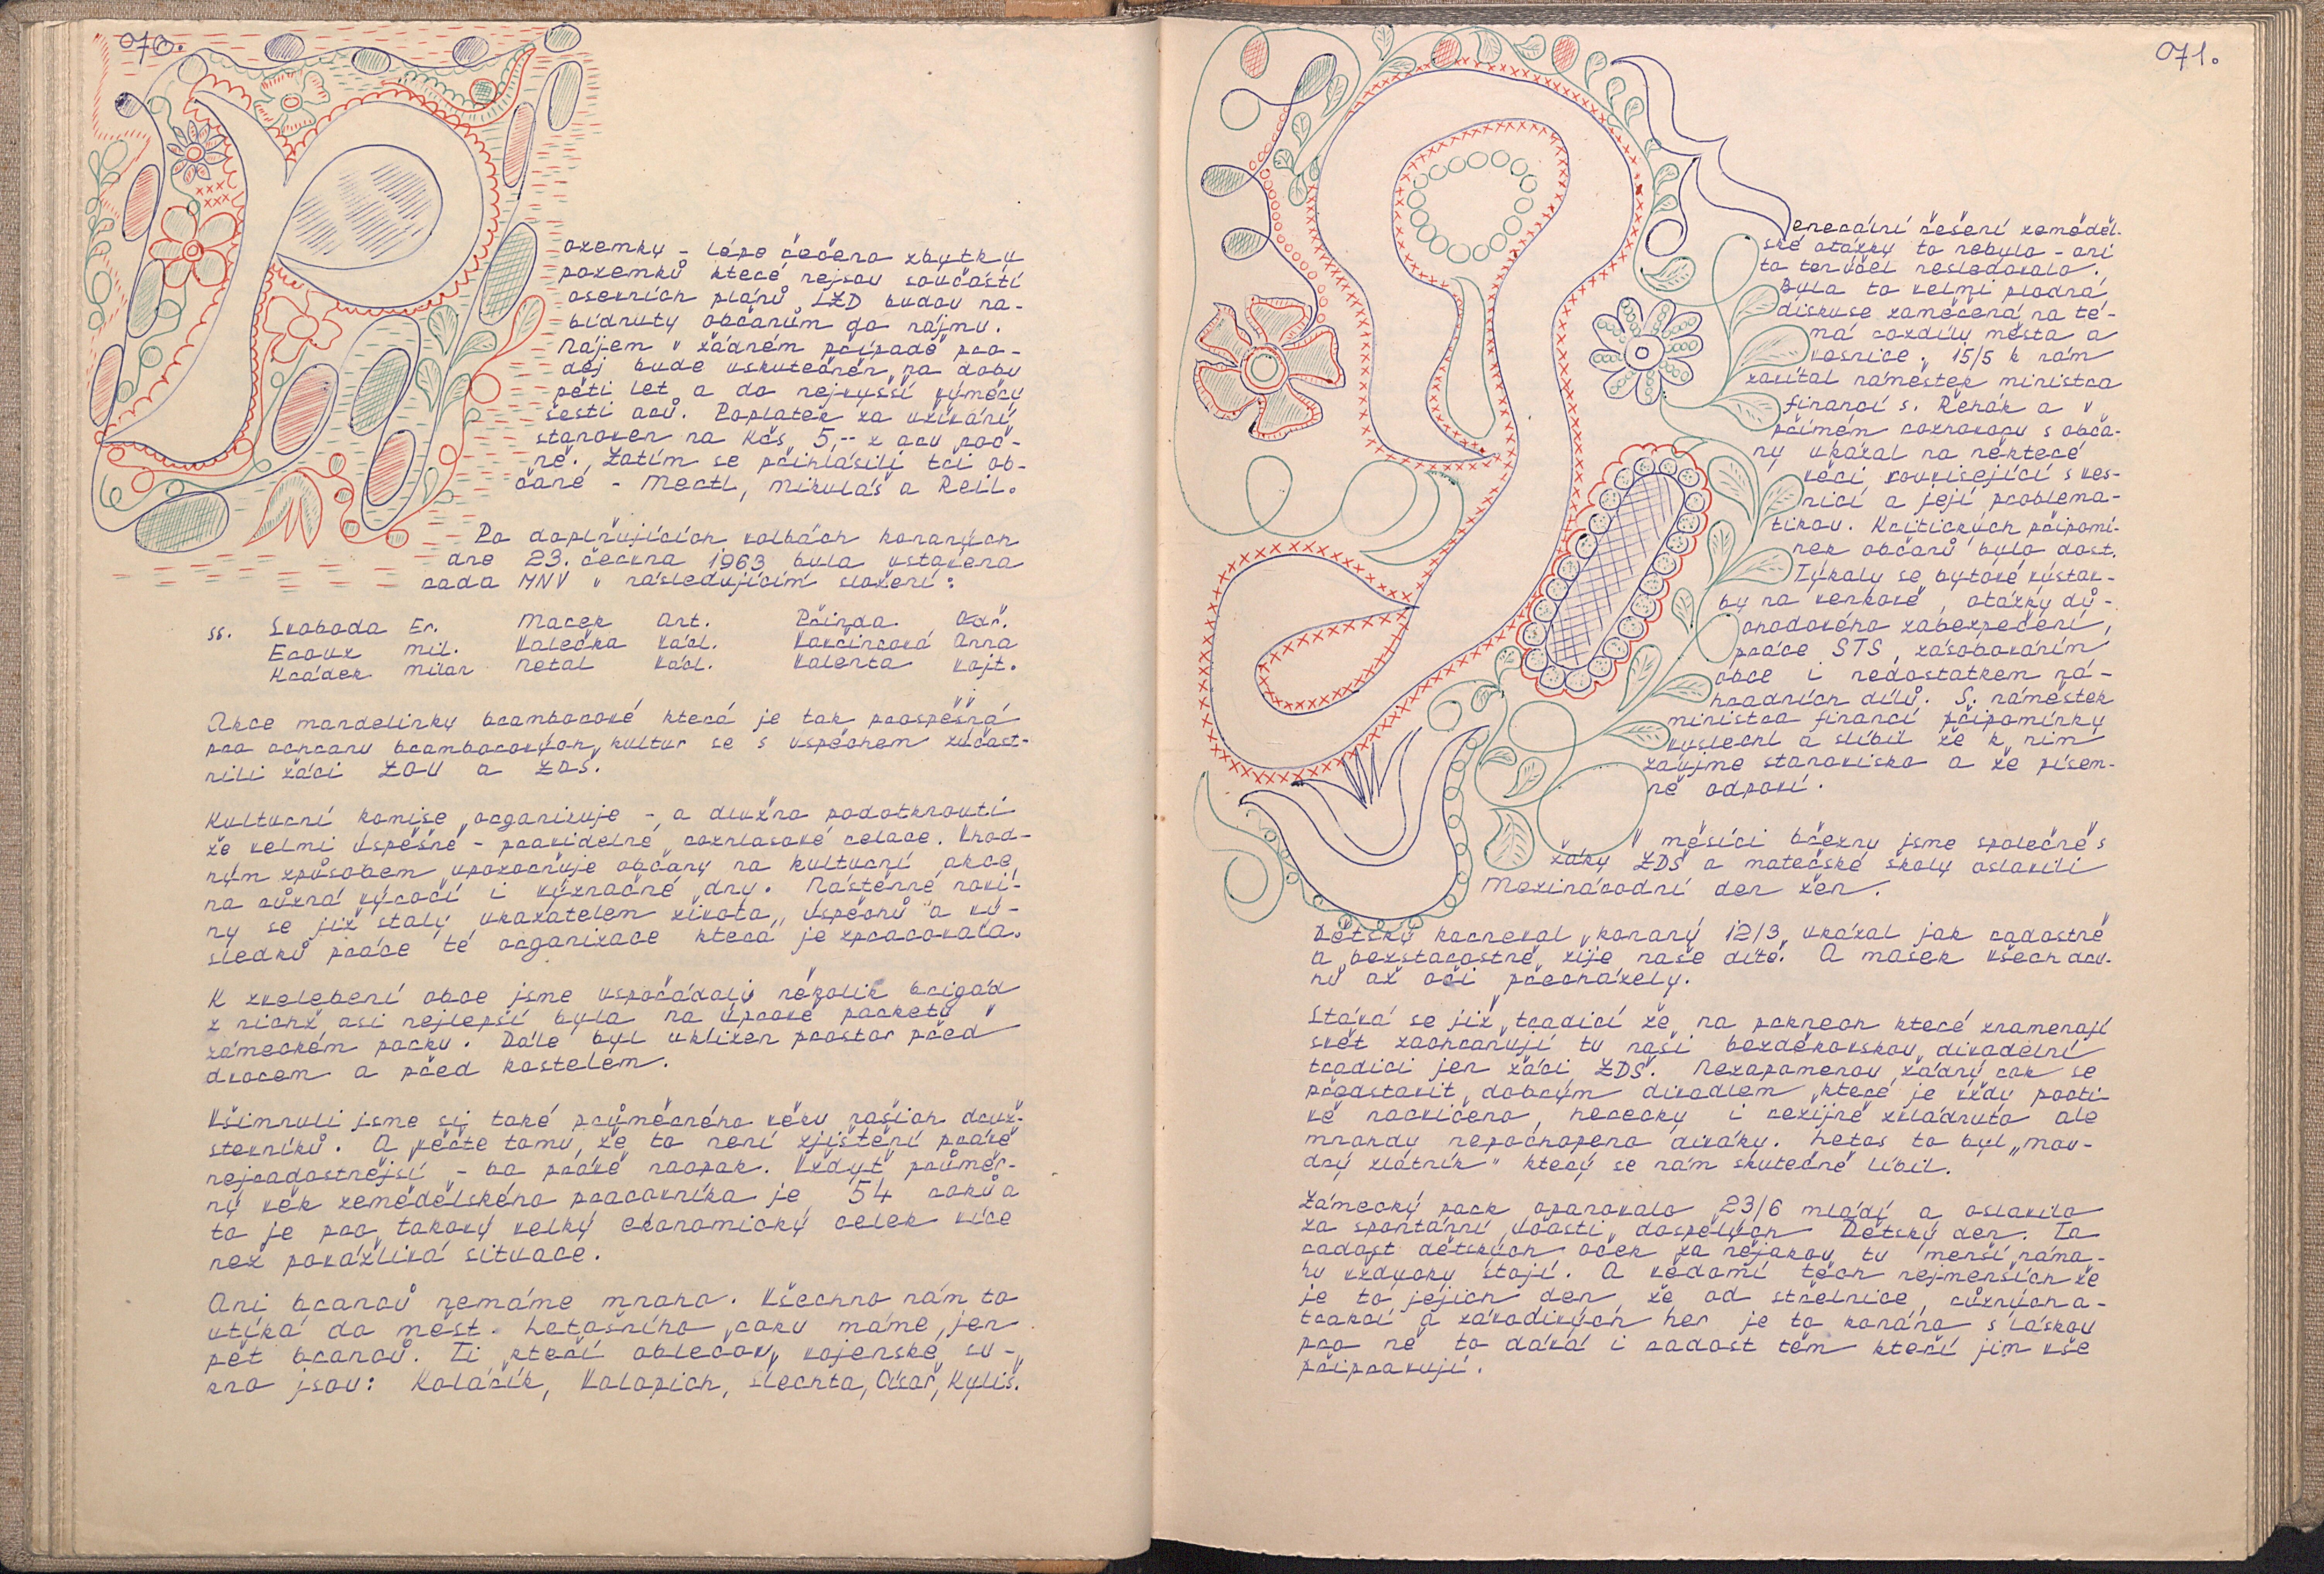 070.
Pozemky - lépe řečeno zbytky
pozemků které nejsou součástí
osevních plánů JZD budou na-
bídnuty občanům do nájmu.
Nájem v žádném případě pro-
dej bude uskutečněn na dobu
pěti let a do nejvyšší výměry
šesti arů. Poplatek za užívání
stanoven na Kčs 5,-- z aru roč-
ně. Zatím se přihlásili tři ob-
čané - Mertl, Mikuláš a Reil.
Po doplňujících volbách konaných
dne 23. června 1963 byla ustavena
rada MNV v následujícím složení:
ss. Svoboda Er. Macek Ant. Přinda Odř.
Eroux Mil. Valečka Václ. Vavřincová Anna
Hrádek Milan Netal Václ. Valenta Vojt.
Akce mandelinky bramborové která je tak prospěšná
pro ochranu bramborových kultur se s úspěchem zúčast-
nili žáci ZOU a ZDŠ.
Kulturní komise organizuje -, a dlužno podotknouti
že velmi úspěšně - pravidelné rozhlasové relace. Vhod-
ným způsobem upozorňuje občany na kulturní akce,
na různá výročí i význačné dny. Nástěnné novi-
ny se již staly ukazatelem života, úspěchů a vý-
sledků práce té organizace která je zpracovala.
K zvelebení obce jsme uspořádali několik brigád
z nichž asi nejlepší byla na úpravě parketu v
zámeckém parku. Dále byl uklizen prostor před
dvorem a před kostelem.
Všimnuli jsme si také průměrného věku našich druž-
stevníků. A věřte tomu, že to není zjištění právě
nejradostnější - ba právě naopak. Vždyť průměr-
ný věk zemědělského pracovníka je 54 roků a
to je pro takový velký ekonomický celek více
než povážlivá situace.
Ani branců nemáme mnoho. Všechno nám to
utíká do měst. Letošního roku máme jen
pět branců. Ti kteří oblečou vojenské su-
kno jsou: Kolařík, Valopich, Šlechta, Císař, Kyliš.
071.
Generální řešení zeměděl-
ské otázky to nebylo - ani
to ten účel nesledovalo.
Byla to velmi plodná
diskuse zaměřená na té-
ma rozdíly města a
vesnice. 15/5 k nám
zavítal náměstek ministra
financí s. Řehák a v
přímém rozhovoru s obča-
ny ukázal na některé
věci související s ves-
nicí a její problema-
tikou. Kritických připomí-
nek občanů bylo dost.
Týkaly se bytové výstav-
by na venkově, otázky dů-
chodového zabezpečení,
práce STS, zásobováním
obce i nedostatkem ná-
hradních dílů. S. náměstek
ministra financí připomínky
vyslechl a slíbil že k nim
zaujme stanovisko a že písem-
ně odpoví.
V měsíci březnu jsme společně s
žáky ZDŠ a mateřské školy oslavili
Mezinárodní den žen.
Dětský karneval konaný 12/3 ukázal jak radostně
a bezstarostně žije naše dítě. A masek všech dru-
hů až oči přecházely.
Stává se již tradicí že na prknech které znamenají
svět zachraňují tu naši bezděkovskou divadelní
tradici jen žáci ZDŠ. Nezapomenou žádný rok se
představit dobrým divadlem které je vždy pocti-
vě nacvičeno, herecky i režijně zvládnuto ale
mnohdy nepochopeno diváky. Letos to byl „Mou-
drý zlatník" který se nám skutečně líbil.
Zámecký park opanovalo 23/6 mládí a oslavilo
za spontánní účasti dospělých Dětský den. Ta
radost dětských oček za nějakou tu menší náma-
hu vždycky stojí. A vědomí těch nejmenších že
je to jejich den že od střelnice, různých a-
trakcí a závodivých her je to konáno s láskou
pro ně to dává i radost těm kteří jim vše
připravují.